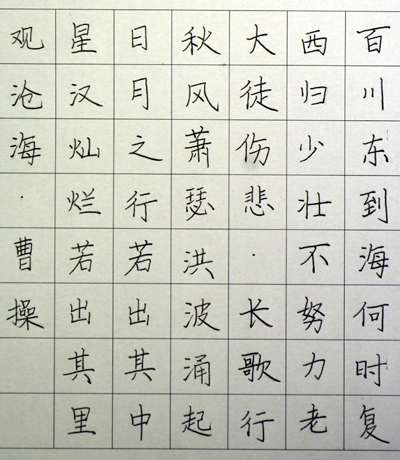 百川东到海何时复
西归少壮不努力老
大徒伤悲·长歌行
秋风萧瑟洪波涌起
日月之行若出其中
星汉灿烂若出其里
观沧海·曹操